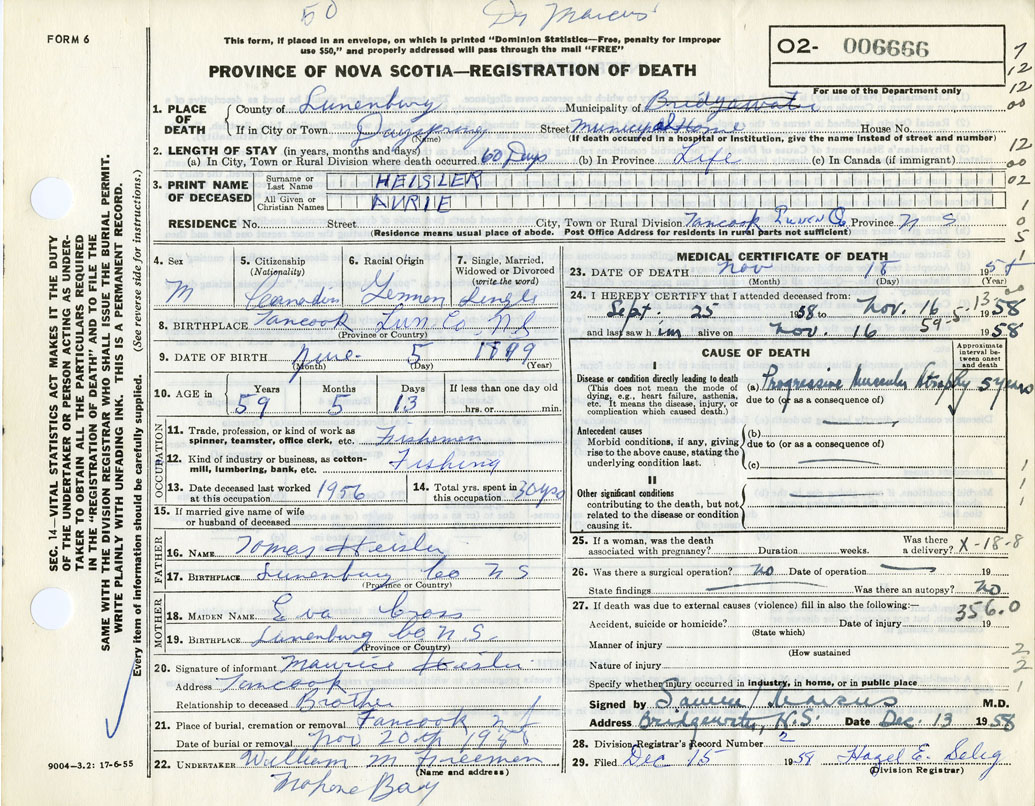 50 Dr Marcus
FORM 6
This form, if placed in an envelope, on which is printed "Dominion Statistics—Free, penalty for improper
use $50," and properly addressed will pass through the mail "FREE"
O2- 006666
For use of the Department only
PROVINCE OF NOVA SCOTIA—REGISTRATION OF DEATH
1. PLACE OF DEATH County of Lunenburg Municipality of Bridgewater
If in City or Town Dayspring Street Municipal Home House No.
(Name) (If death occurred in a hospital or institution, give the name instead of street and number)
2. LENGTH OF STAY (in years, months and days)
(a) In City, Town or Rural Division where death occurred 60 Days (b) In Province Life (c) In Canada (if immigrant)
3. PRINT NAME OF DECEASED
Surname or Last Name HEISLER
All Given or Christian Names AVRIE
RESIDENCE No. Street City, Town or Rural Division Tancook Lunen Co Province N S
(Residence means usual place of abode. Post Office Address for residents in rural parts not sufficient)
4. Sex M
5. Citizenship (Nationality) Canadian
6. Racial Origin German
7. Single, Married, Widowed or Divorced (write the word) Single
8. BIRTHPLACE Tancook Lun. Co. N S
(Province or Country)
9. DATE OF BIRTH June 5 1899
(Month) (Day) (Year)
10. AGE in Years 59 Months 5 Days 13 If less than one day old hrs. or min.
OCCUPATION
11. Trade, profession, or kind of work as spinner, teamster, office clerk, etc. Fishermen
12. Kind of industry or business, as cotton-mill, lumbering, bank, etc. Fishing
13. Date deceased last worked at this occupation 1956
14. Total yrs. spent in this occupation 30 yrs
15. If married give name of wife or husband of deceased
FATHER
16. NAME Tomas Heisler
17. BIRTHPLACE Lunenburg Co N S
(Province or Country)
MOTHER
18. MAIDEN NAME Eva Cross
19. BIRTHPLACE Lunenburg Co N.S.
(Province or Country)
20. Signature of informant Maurice Heisler
Address Tancook
Relationship to deceased Brother
21. Place of burial, cremation or removal Tancook N S
Date of burial or removal Nov 20th 1958
22. UNDERTAKER William M Freeman
(Name and address)
Bay
9004—3.2: 17-6-55
SEC. 14—VITAL STATISTICS ACT MAKES IT THE DUTY
OF THE UNDERTAKER OR PERSON ACTING AS UNDER-
TAKER TO OBTAIN ALL THE PARTICULARS REQUIRED
IN THE "REGISTRATION OF DEATH" AND TO FILE THE
SAME WITH THE DIVISION REGISTRAR WHO SHALL ISSUE THE BURIAL PERMIT.
WRITE PLAINLY WITH UNFADING INK. THIS IS A PERMANENT RECORD.
Every item of information should be carefully supplied. (See reverse side for instructions.)
MEDICAL CERTIFICATE OF DEATH
23. DATE OF DEATH Nov 18 1958
(Month) (Day) (Year)
24. I HEREBY CERTIFY that I attended deceased from:
Sept. 25 1958 to Nov. 16 1958
59-5-13
and last saw him alive on Nov. 16 1958
CAUSE OF DEATH
Approximate interval between onset and death
I
Disease or condition directly leading to death
(This does not mean the mode of dying, e.g., heart failure, asthenia, etc. It means the disease, injury, or complication which caused death.)
(a) Progressive Muscular Atrophy 5 years
due to (or as a consequence of)
Antecedent causes
Morbid conditions, if any, giving rise to the above cause, stating the underlying condition last.
(b)
due to (or as a consequence of)
(c)
II
Other significant conditions
contributing to the death, but not related to the disease or condition causing it.
25. If a woman, was the death associated with pregnancy? Duration weeks. Was there a delivery? X-18-8
26. Was there a surgical operation? no Date of operation 19
State findings Was there an autopsy? no
27. If death was due to external causes (violence) fill in also the following:— 356.0
Accident, suicide or homicide? Date of injury 19
(State which)
Manner of injury
(How sustained
Nature of injury
Specify whether injury occurred in industry, in home, or in public place
Signed by Samuel Marcus M.D.
Address Bridgewater, N.S. Date Dec. 13 1958
28. Division Registrar's Record Number 2
29. Filed Dec 15 1958 Hazel E. Selig
(Division Registrar)
7
12
12
00
12
00
02
1
0
5
1
00
1
1
1
2
2
1